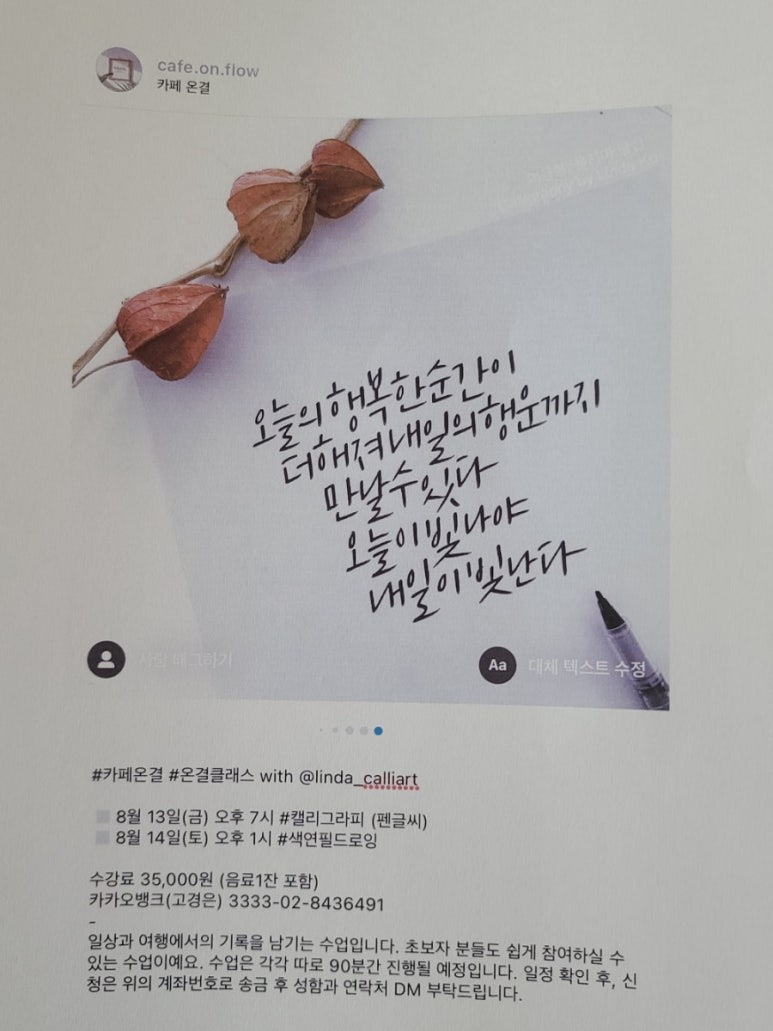 cafe.on.flow
카페 온결
오늘의 행복한 순간이
더해져 내일의 행운까지
만날 수 있다
오늘이 빛나야
내일이 빛난다
사람 태그하기
Aa 대체 텍스트 수정
#카페온결 #온결클래스 with @linda_calliart
8월 13일(금) 오후 7시 #캘리그라피 (펜글씨)
8월 14일(토) 오후 1시 #색연필드로잉
수강료 35,000원 (음료1잔 포함)
카카오뱅크(고경은) 3333-02-8436491
-
일상과 여행에서의 기록을 남기는 수업입니다. 초보자 분들도 쉽게 참여하실 수
있는 수업이예요. 수업은 각각 따로 90분간 진행될 예정입니다. 일정 확인 후, 신
청은 위의 계좌번호로 송금 후 성함과 연락처 DM 부탁드립니다.